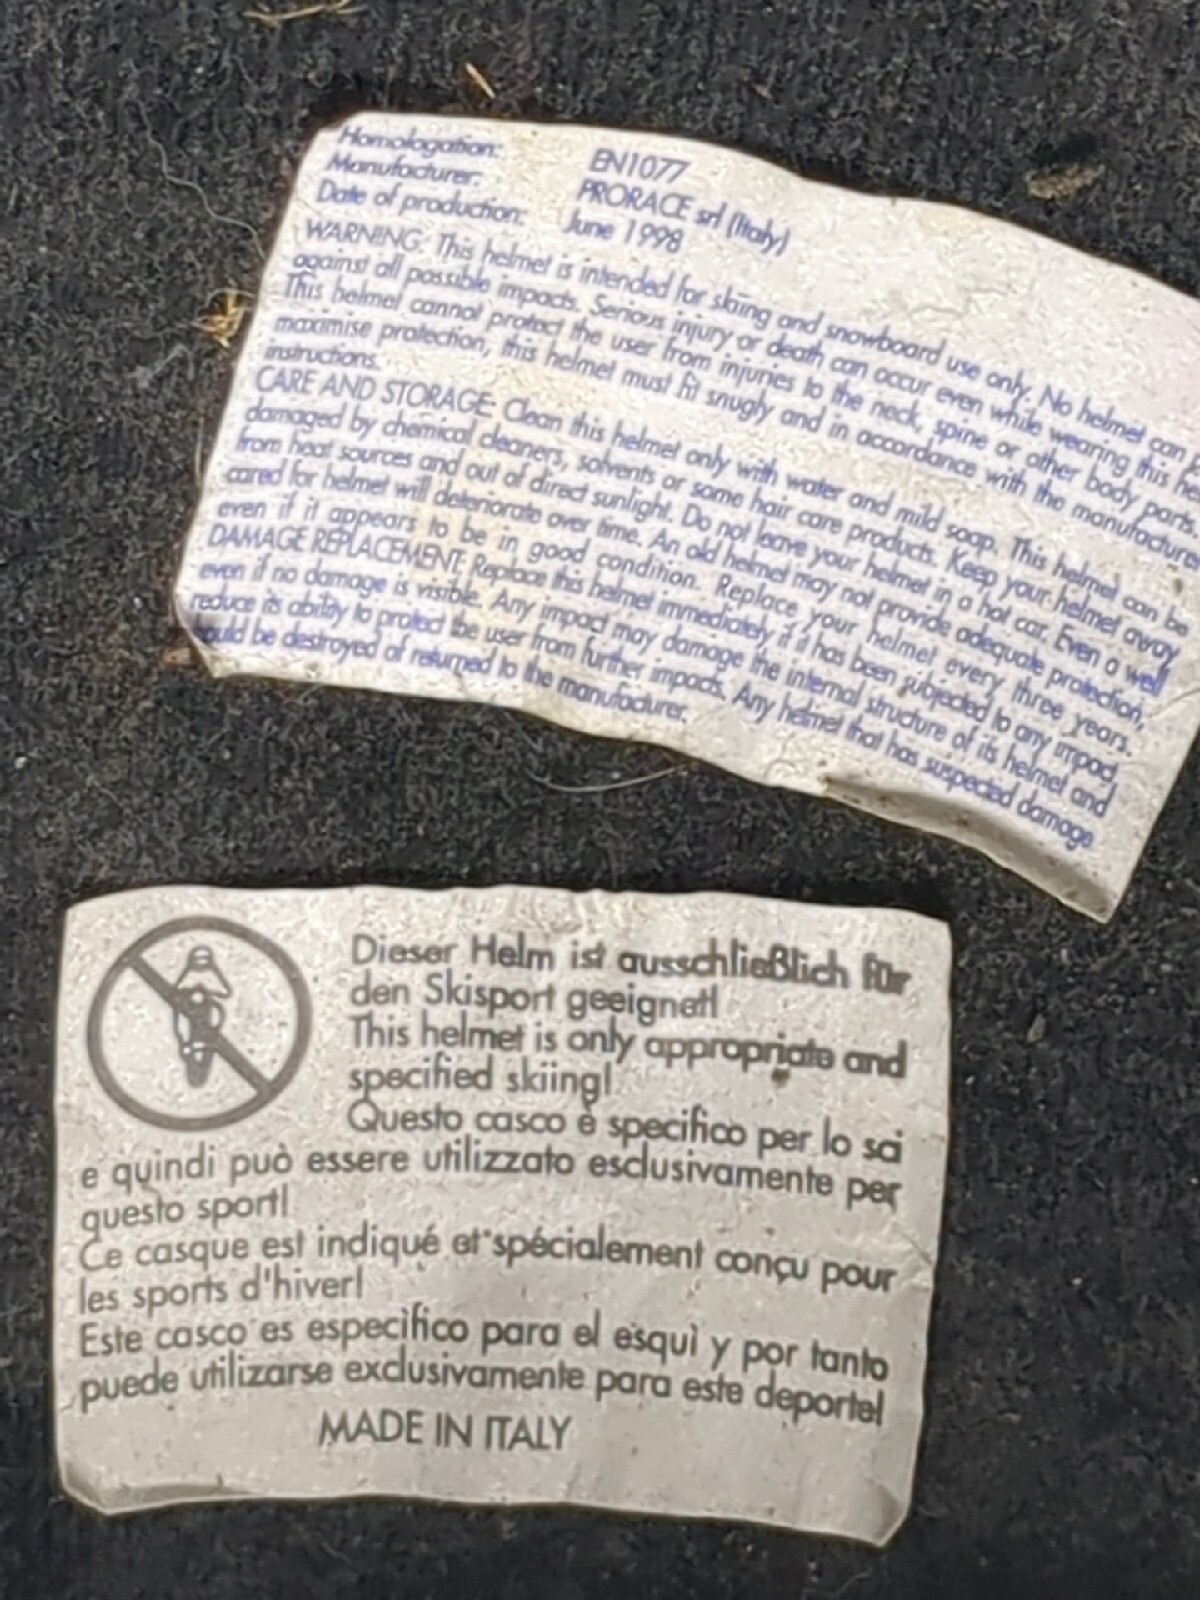 Homologation: EN1077
Manufacturer: PRORACE srl (Italy)
Date of production: June 1998
WARNING: This helmet is intended for skiing and snowboard use only. No helmet can
against all possible impacts. Serious injury or death can occur even while wearing this
This helmet cannot protect the user from injuries to the neck, spine or other body parts.
maximise protection, this helmet must fit snugly and in accordance with the
instructions.
CARE AND STORAGE: Clean this helmet only with water and mild soap. This helmet can be
damaged by chemical cleaners, solvents or some hair care products. Keep your helmet away
from heat sources and out of direct sunlight. Do not leave your helmet in a hot car. Even a well
cared for helmet will deteriorate over time. An old helmet may not provide adequate protection,
even if it appears to be in good condition. Replace your helmet every three years.
DAMAGE REPLACEMENT: Replace this helmet immediately if it has been subjected to any impact,
even if no damage is visible. Any impact may damage the internal structure of its helmet and
reduce its ability to protect the user from further impacts. Any helmet that has suspected damage
be destroyed of returned to the manufacturer.
Dieser Helm ist ausschließlich für
den Skisport geeignet!
This helmet is only appropriate and
specified skiing!
Questo casco è specifico per lo sci
e quindi può essere utilizzato esclusivamente per
questo sport!
Ce casque est indiqué et spécialement conçu pour
les sports d'hiver!
Este casco es especìfico para el esquì y por tanto
puede utilizarse exclusivamente para este deporte!
MADE IN ITALY